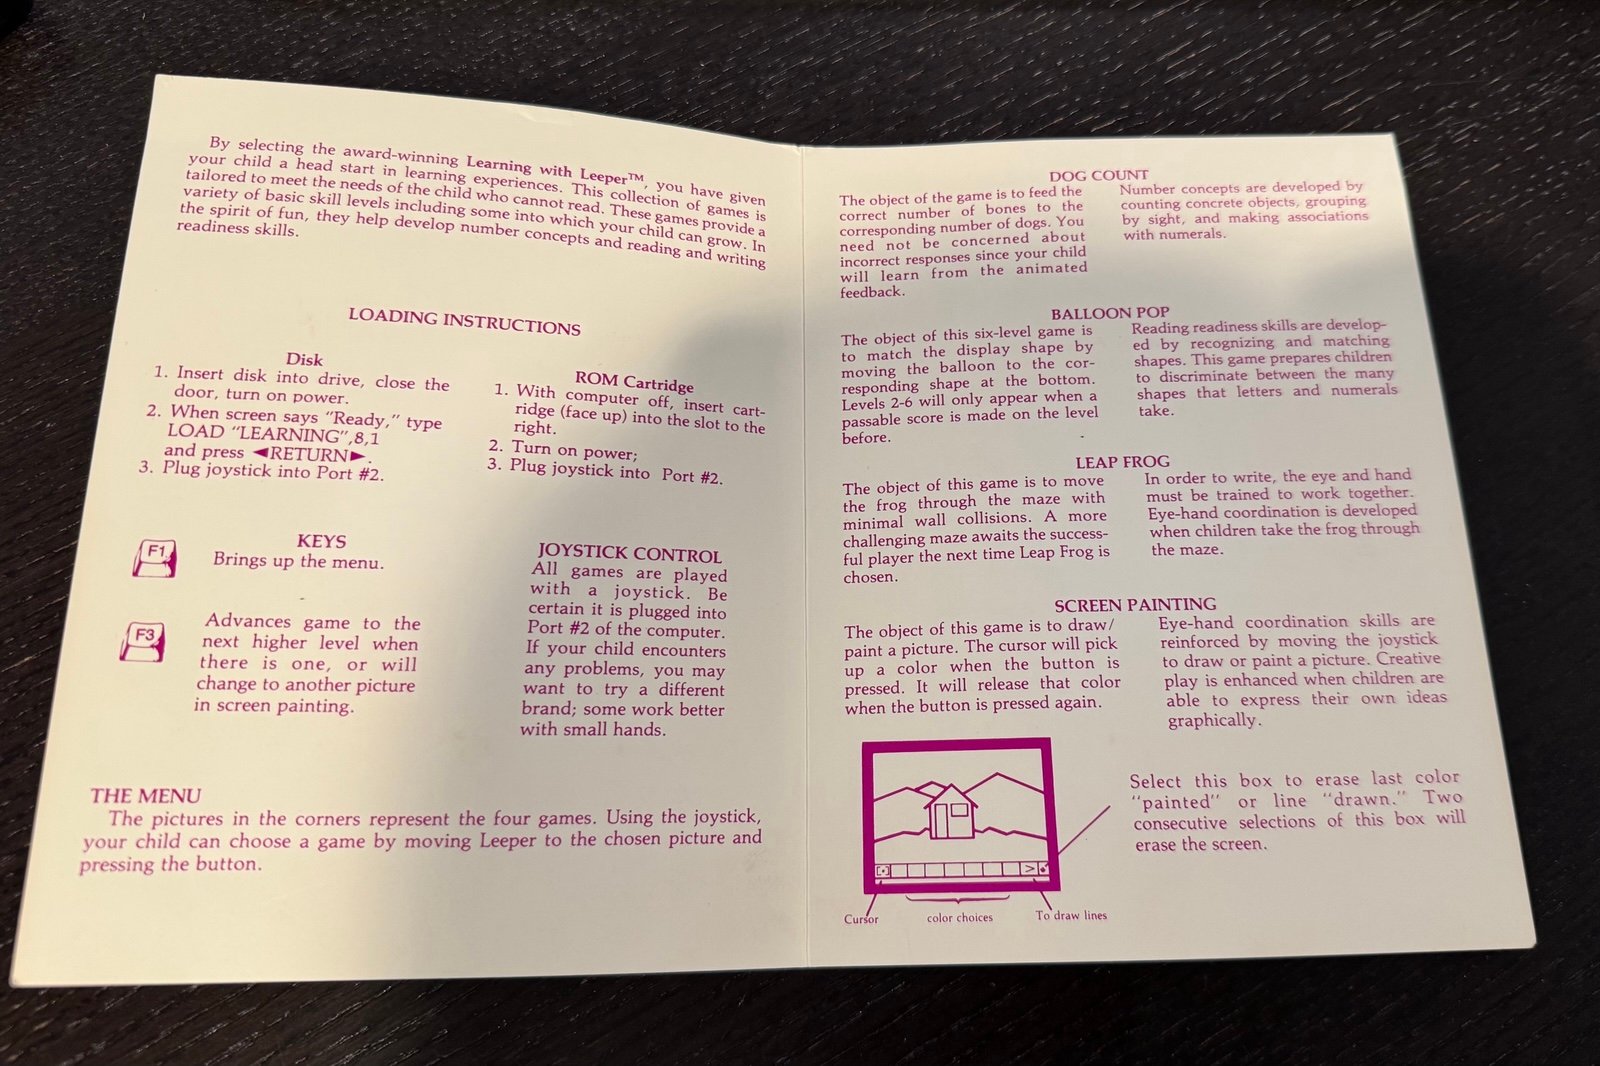 By selecting the award-winning Learning with Leeper™, you have given
your child a head start in learning experiences. This collection of games is
tailored to meet the needs of the child who cannot read. These games provide a
variety of basic skill levels including some into which your child can grow. In
the spirit of fun, they help develop number concepts and reading and writing
readiness skills.
LOADING INSTRUCTIONS
Disk
1. Insert disk into drive, close the
door, turn on power.
2. When screen says "Ready," type
LOAD "LEARNING",8,1
and press ◄RETURN►.
3. Plug joystick into Port #2.
ROM Cartridge
1. With computer off, insert cart-
ridge (face up) into the slot to the
right.
2. Turn on power;
3. Plug joystick into Port #2.
KEYS
F1
Brings up the menu.
F3
Advances game to the
next higher level when
there is one, or will
change to another picture
in screen painting.
JOYSTICK CONTROL
All games are played
with a joystick. Be
certain it is plugged into
Port #2 of the computer.
If your child encounters
any problems, you may
want to try a different
brand; some work better
with small hands.
THE MENU
The pictures in the corners represent the four games. Using the joystick,
your child can choose a game by moving Leeper to the chosen picture and
pressing the button.
DOG COUNT
The object of the game is to feed the
correct number of bones to the
corresponding number of dogs. You
need not be concerned about
incorrect responses since your child
will learn from the animated
feedback.
Number concepts are developed by
counting concrete objects, grouping
by sight, and making associations
with numerals.
BALLOON POP
The object of this six-level game is
to match the display shape by
moving the balloon to the cor-
responding shape at the bottom.
Levels 2-6 will only appear when a
passable score is made on the level
before.
Reading readiness skills are develop-
ed by recognizing and matching
shapes. This game prepares children
to discriminate between the many
shapes that letters and numerals
take.
LEAP FROG
The object of this game is to move
the frog through the maze with
minimal wall collisions. A more
challenging maze awaits the success-
ful player the next time Leap Frog is
chosen.
In order to write, the eye and hand
must be trained to work together.
Eye-hand coordination is developed
when children take the frog through
the maze.
SCREEN PAINTING
The object of this game is to draw/
paint a picture. The cursor will pick
up a color when the button is
pressed. It will release that color
when the button is pressed again.
Eye-hand coordination skills are
reinforced by moving the joystick
to draw or paint a picture. Creative
play is enhanced when children are
able to express their own ideas
graphically.
Select this box to erase last color
"painted" or line "drawn." Two
consecutive selections of this box will
erase the screen.
Cursor
color choices
To draw lines